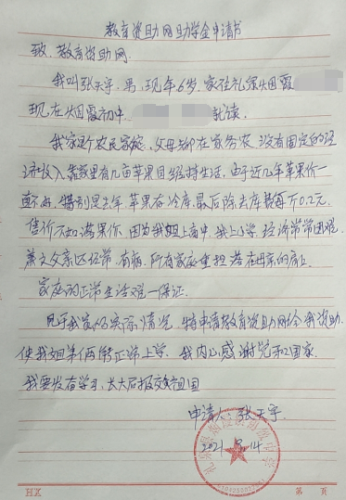 教育资助网助学金申请书
致:教育资助网
我叫张天宇,男,现年6岁,家在礼泉烟霞
现在烟霞初中 就读。
我家是个农民家庭,父母都在家务农,没有固定的经
济收入,靠家里有几亩苹果园维持生活,由于近几年苹果价一
直不好,特别是去年苹果存冷库,最后除去库费每斤0.2元,
售价不如满果价,因为我姐上高中,我上小学,经济常常困难,
兼之父亲还经常有病,所有家庭重担落在母亲的肩上,
家庭的正常生活难一保证。
见于我家的实际情况,特申请教育资助网给我资助,
使我姐弟俩能正常上学,我内心感谢党和国家,
我要发奋学习,长大后报效祖国
申请人:张天宇
2021.3.14
HX
第 页